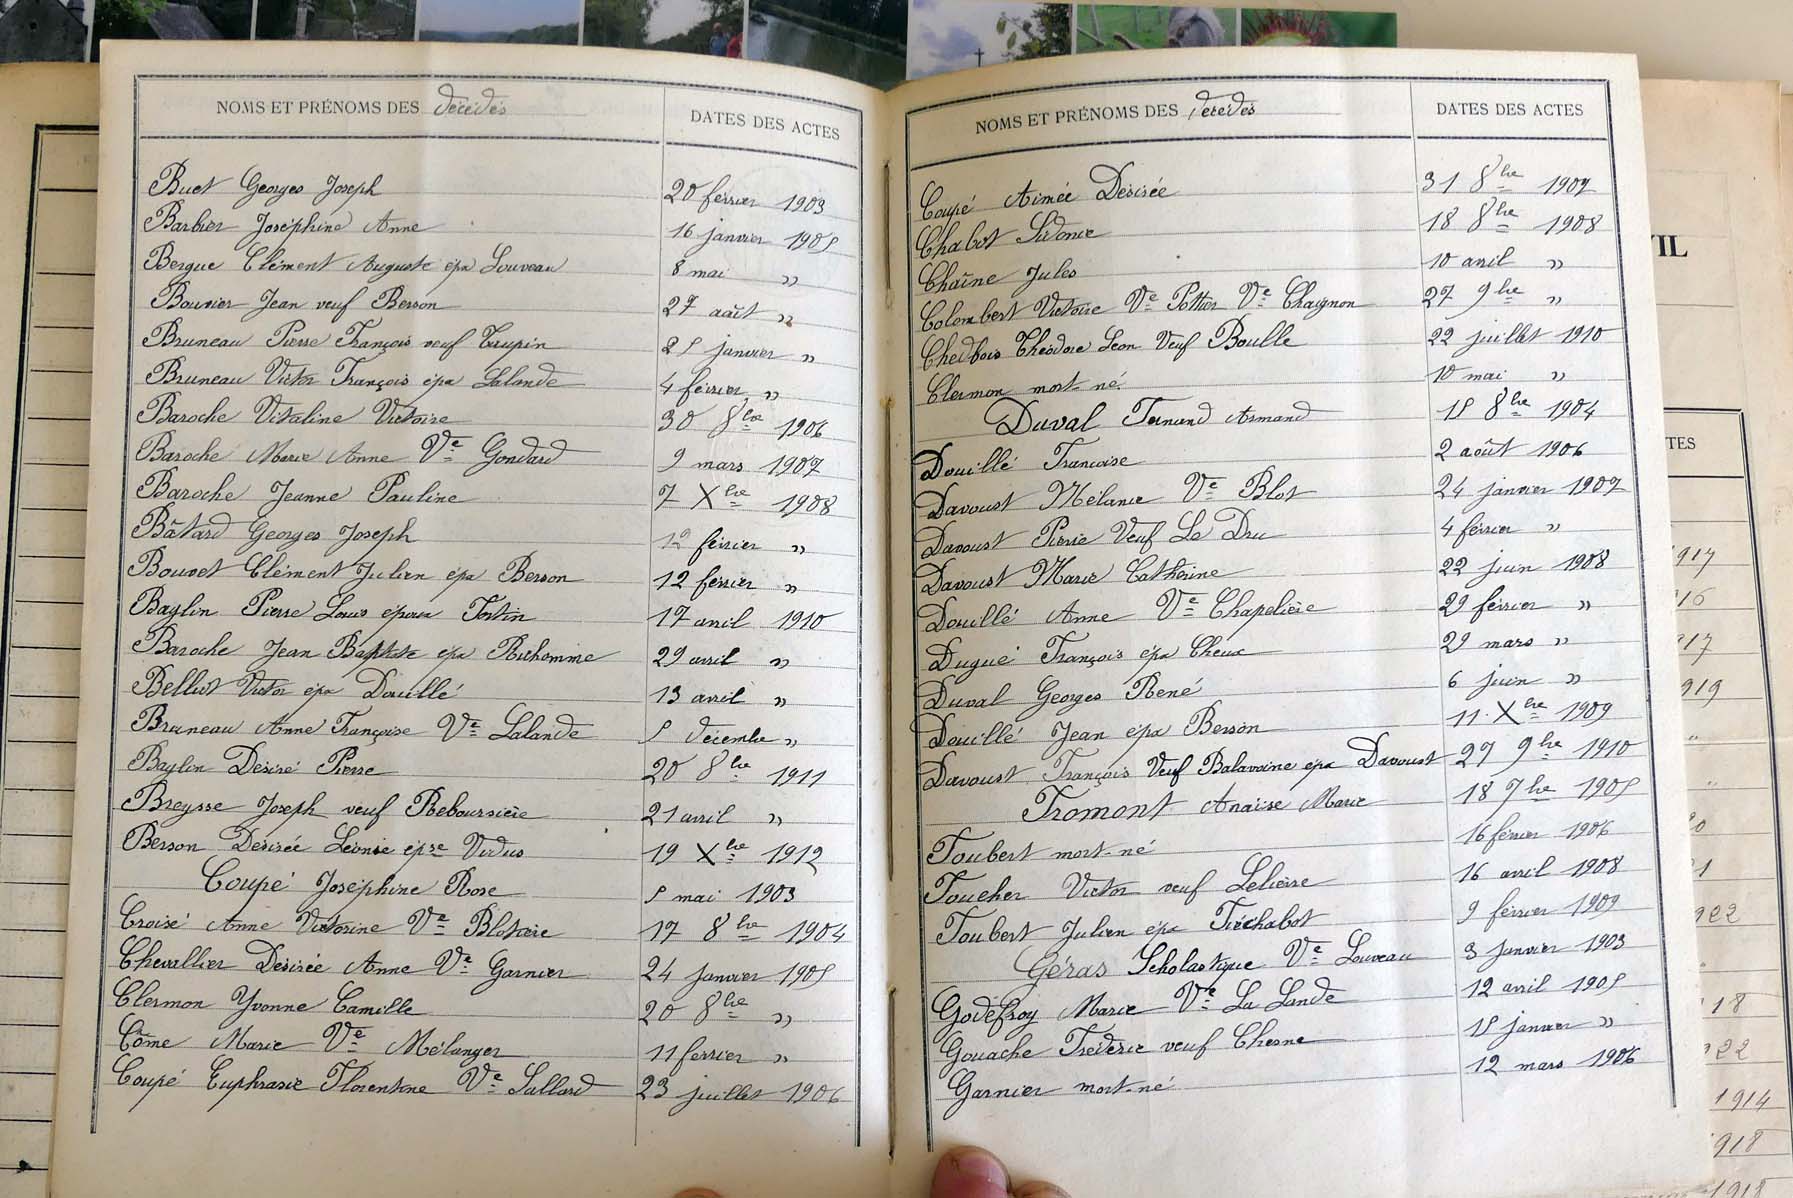 NOMS ET PRÉNOMS DES décédés DATES DES ACTES
Buet Georges Joseph 20 février 1903
Barbier Joséphine Anne 16 janvier 1905
Bergue Clément Auguste épx Louveau 8 mai "
Bouvier Jean veuf Berson 27 août "
Bruneau Pierre François veuf Turpin 25 janvier "
Bruneau Victor François épx Lalande 4 février "
Baroche Vitaline Victoire 30 8bre 1906
Baroche Marie Anne Ve Gondard 9 mars 1907
Baroche Jeanne Pauline 7 Xbre 1908
Bâtard Georges Joseph 12 février "
Bouvet Clément Julien épx Berson 12 février "
Baglin Pierre Louis époux Fortin 17 avril 1910
Baroche Jean Baptiste épx Richomme 29 avril "
Belliot Victor épx Douillé 13 avril "
Bruneau Anne Françoise Ve Lalande 5 décembre "
Baglin Désiré Pierre 20 8bre 1911
Breysse Joseph veuf Reboursière 21 avril "
Berson Désirée Léonie épse Virdus 19 Xbre 1912
Coupé Joséphine Rose 5 mai 1903
Croisé Anne Victorine Ve Blotaire 17 8bre 1904
Chevallier Désirée Anne Ve Garnier 24 janvier 1905
Clermon Yvonne Camille 20 8bre "
Côme Marie Ve Mélanger 11 février "
Coupé Euphrasie Florentine Ve Sallard 23 juillet 1906
NOMS ET PRÉNOMS DES décédés DATES DES ACTES
Coupé Aimée Désirée 31 8bre 1907
Chabot Sidonie 18 8bre 1908
Chaîne Jules 10 avril "
Colombert Victoire Ve Pottier Ve Chaignon 27 9bre "
Chedbois Théodore Léon Veuf Boulle 22 juillet 1910
Clermon mort-né 10 mai "
Duval Fernand Armand 15 8bre 1904
Douillé Françoise 2 août 1906
Davoust Mélanie Ve Blot 24 janvier 1907
Davoust Pierre Veuf Le Dru 4 février "
Davoust Marie Catherine 22 juin 1908
Douillé Anne Ve Chapelière 29 février "
Dugué François épx Cheux 29 mars "
Duval Georges René 6 juin "
Douillé Jean épx Berson 11 Xbre 1909
Davoust François Veuf Balavoine épx Davoust 27 9bre 1910
Fromont Anaïse Marie 18 7bre 1905
Foubert mort-né 16 février 1906
Foucher Victor veuf Lelièvre 16 avril 1908
Foubert Julien épx Fréchabot 9 février 1909
Géras Scholastique Ve Louveau 3 janvier 1903
Godefroy Marie Ve La Lande 12 avril 1905
Gouache Fréderic veuf Chesne 15 janvier "
Garnier mort-né 12 mars 1906
VIL
TES
1917
16
17
1919
20
1
1922
18
22
1914
1918
1918